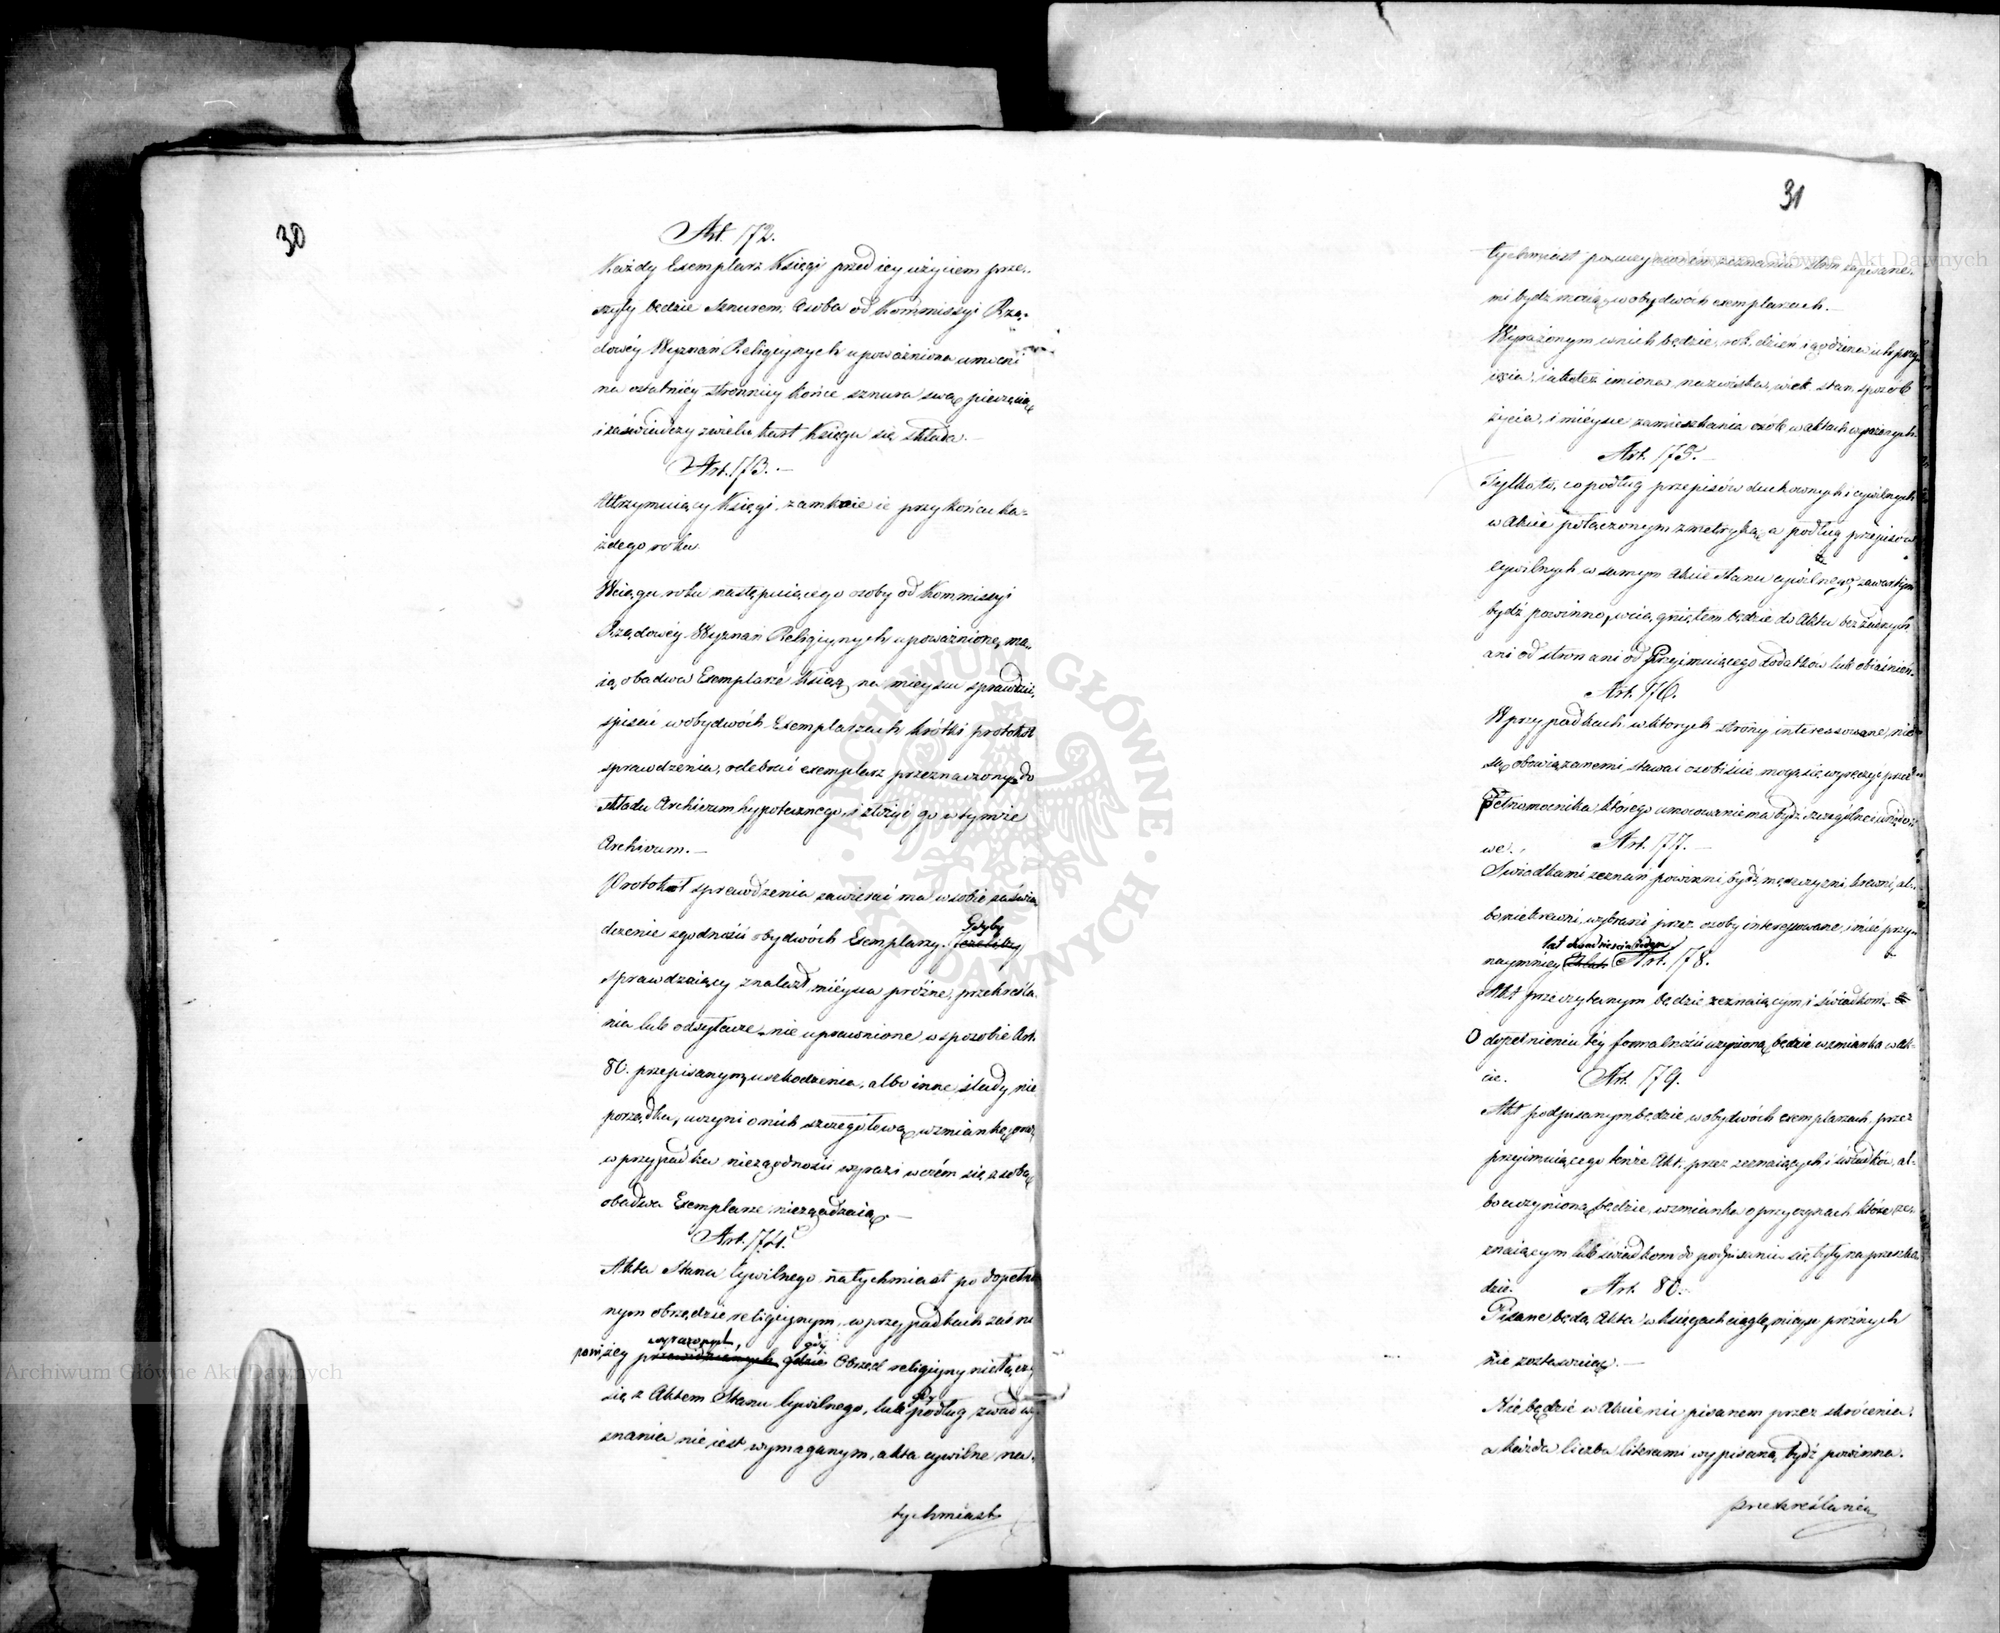 30
Art. 172.
Każdy Exemplarz Księgi przed iey użyciem prze-
szyty będzie sznurem. Osoba od Kommissyi Rzą-
dowéy Wyznań Religiynych upoważniona umocni
na ostatniéy stronnicy końce sznura swą pieczęcią
i zaświadczy z wielu kart Księga się składa.—
Art. 173.—
Utrzymuiący Księgi, zamknie ie przy końcu ka-
żdego roku.
W ciągu roku następuiącego osoby od Kommissyi
Rządowéy Wyznań Religiynych upoważnione, ma-
ią obadwa Exemplarze Ksiąg na mieyscu sprawdzić,
spisać w obydwóch Exemplarzach krótki protokół
sprawdzenia, odebrać exemplarz przeznaczony do
składu Archivum hypotecznego, i złożyć go w tymże
Archivum.—
Protokół sprawdzenia zawierać ma w sobie zaświa-
dczenie zgodności obydwóch Exemplarzy. Jeżeliby
Gdyby
sprawdzaiący znalazł mieysca próżne, przekréśla-
nia lub odsyłacze, nie uprawnione w sposobie Art.
80. przepisanym, uszkodzenia, albo inne ślady nie
porządku, uczyni o nich szczegółową wzmiankę, oraz
w przypadku niezgodności wyrazi w czém się z sobą
obadwa Exemplarze niezgadzaią.—
Art. 174.
Akta Stanu Cywilnego natychmiast po dopełnio
nym obrzędzie religiynym, w przypadkach zaś ni
wyrażonych, gdy
poniżéy przewidzianych gdzie Obrzęd religiyny nie łączy
się z Aktem Stanu Cywilnego, lub gdy podług zasad wy
znania nie iest wymaganym, akta cywilne na-
tychmiast
31
tychmiast po uczynionem zeznaniu stron zapisane-
mi bydź maią w obydwóch exemplarzach.—
Wyrażonym w nich będzie, rok, dzień i godzina ich przy-
ięcia, iakoteż imiona, nazwiska, wiek, stan, sposób
życia, i mieysce zamieszkania osób w aktach wyrażonych.
Art. 175.—
Tylko to, co podług przepisów duchownych i cywilnych
w Akcie połączonym z metryką, a podług przepisów
cywilnych w samym Akcie Stanu cywilnego, zawartym
bydź powinno, wciągniętem będzie do Aktu bez żadnych
ani od stron ani od Przyimuiącego dodatków lub obiaśnień.
Art. 176.
W przypadkach w ktorych strony interessowane, nie
są obowiązanemi stawać osobiście mogą się wyręczyć przez
Pełnomocnika, którego umocowanie ma bydź szczególne i urzędo-
we. Art. 177.—
Świadkami zeznań powinni bydź, mężczyzni, krewni, al-
bo niekrewni, wybrani przez osoby interessowane, i mieć przy-
lat dwadzieścia ieden
naymniéy Art. 178.
Akt przeczytanym będzie zeznaiącym i świadkom.
O dopełnieniu téy formalności uczynioną będzie wzmianka w Ak-
cie. Art. 179.
Akt podpisanym będzie, w obydwóch exemplarzach, przez
przyimuiącego tenże Akt, przez zeznaiących i świadków, al-
bo uczynioną będzie, wzmianka o przyczynach które ze-
znaiącym lub świadkom do podpisania się, były na przeszko-
dzie. Art. 80.
Pisane będą Akta w księgach ciągle, mieysc próżnych
nie zostawuiąc.—
Nie będzie w Akcie nic pisanem przez skrócenia,
a każda liczba literami wypisana bydź powinna.
przekréślania